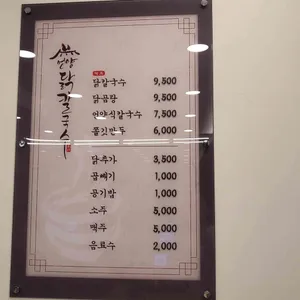 언양
닭칼국수
닭칼국수 9,500
닭곰탕 9,500
언양식칼국수 7,500
쫄깃만두 6,000
닭추가 3,500
곱빼기 1,000
공기밥 1,000
소주 5,000
맥주 5,000
음료수 2,000